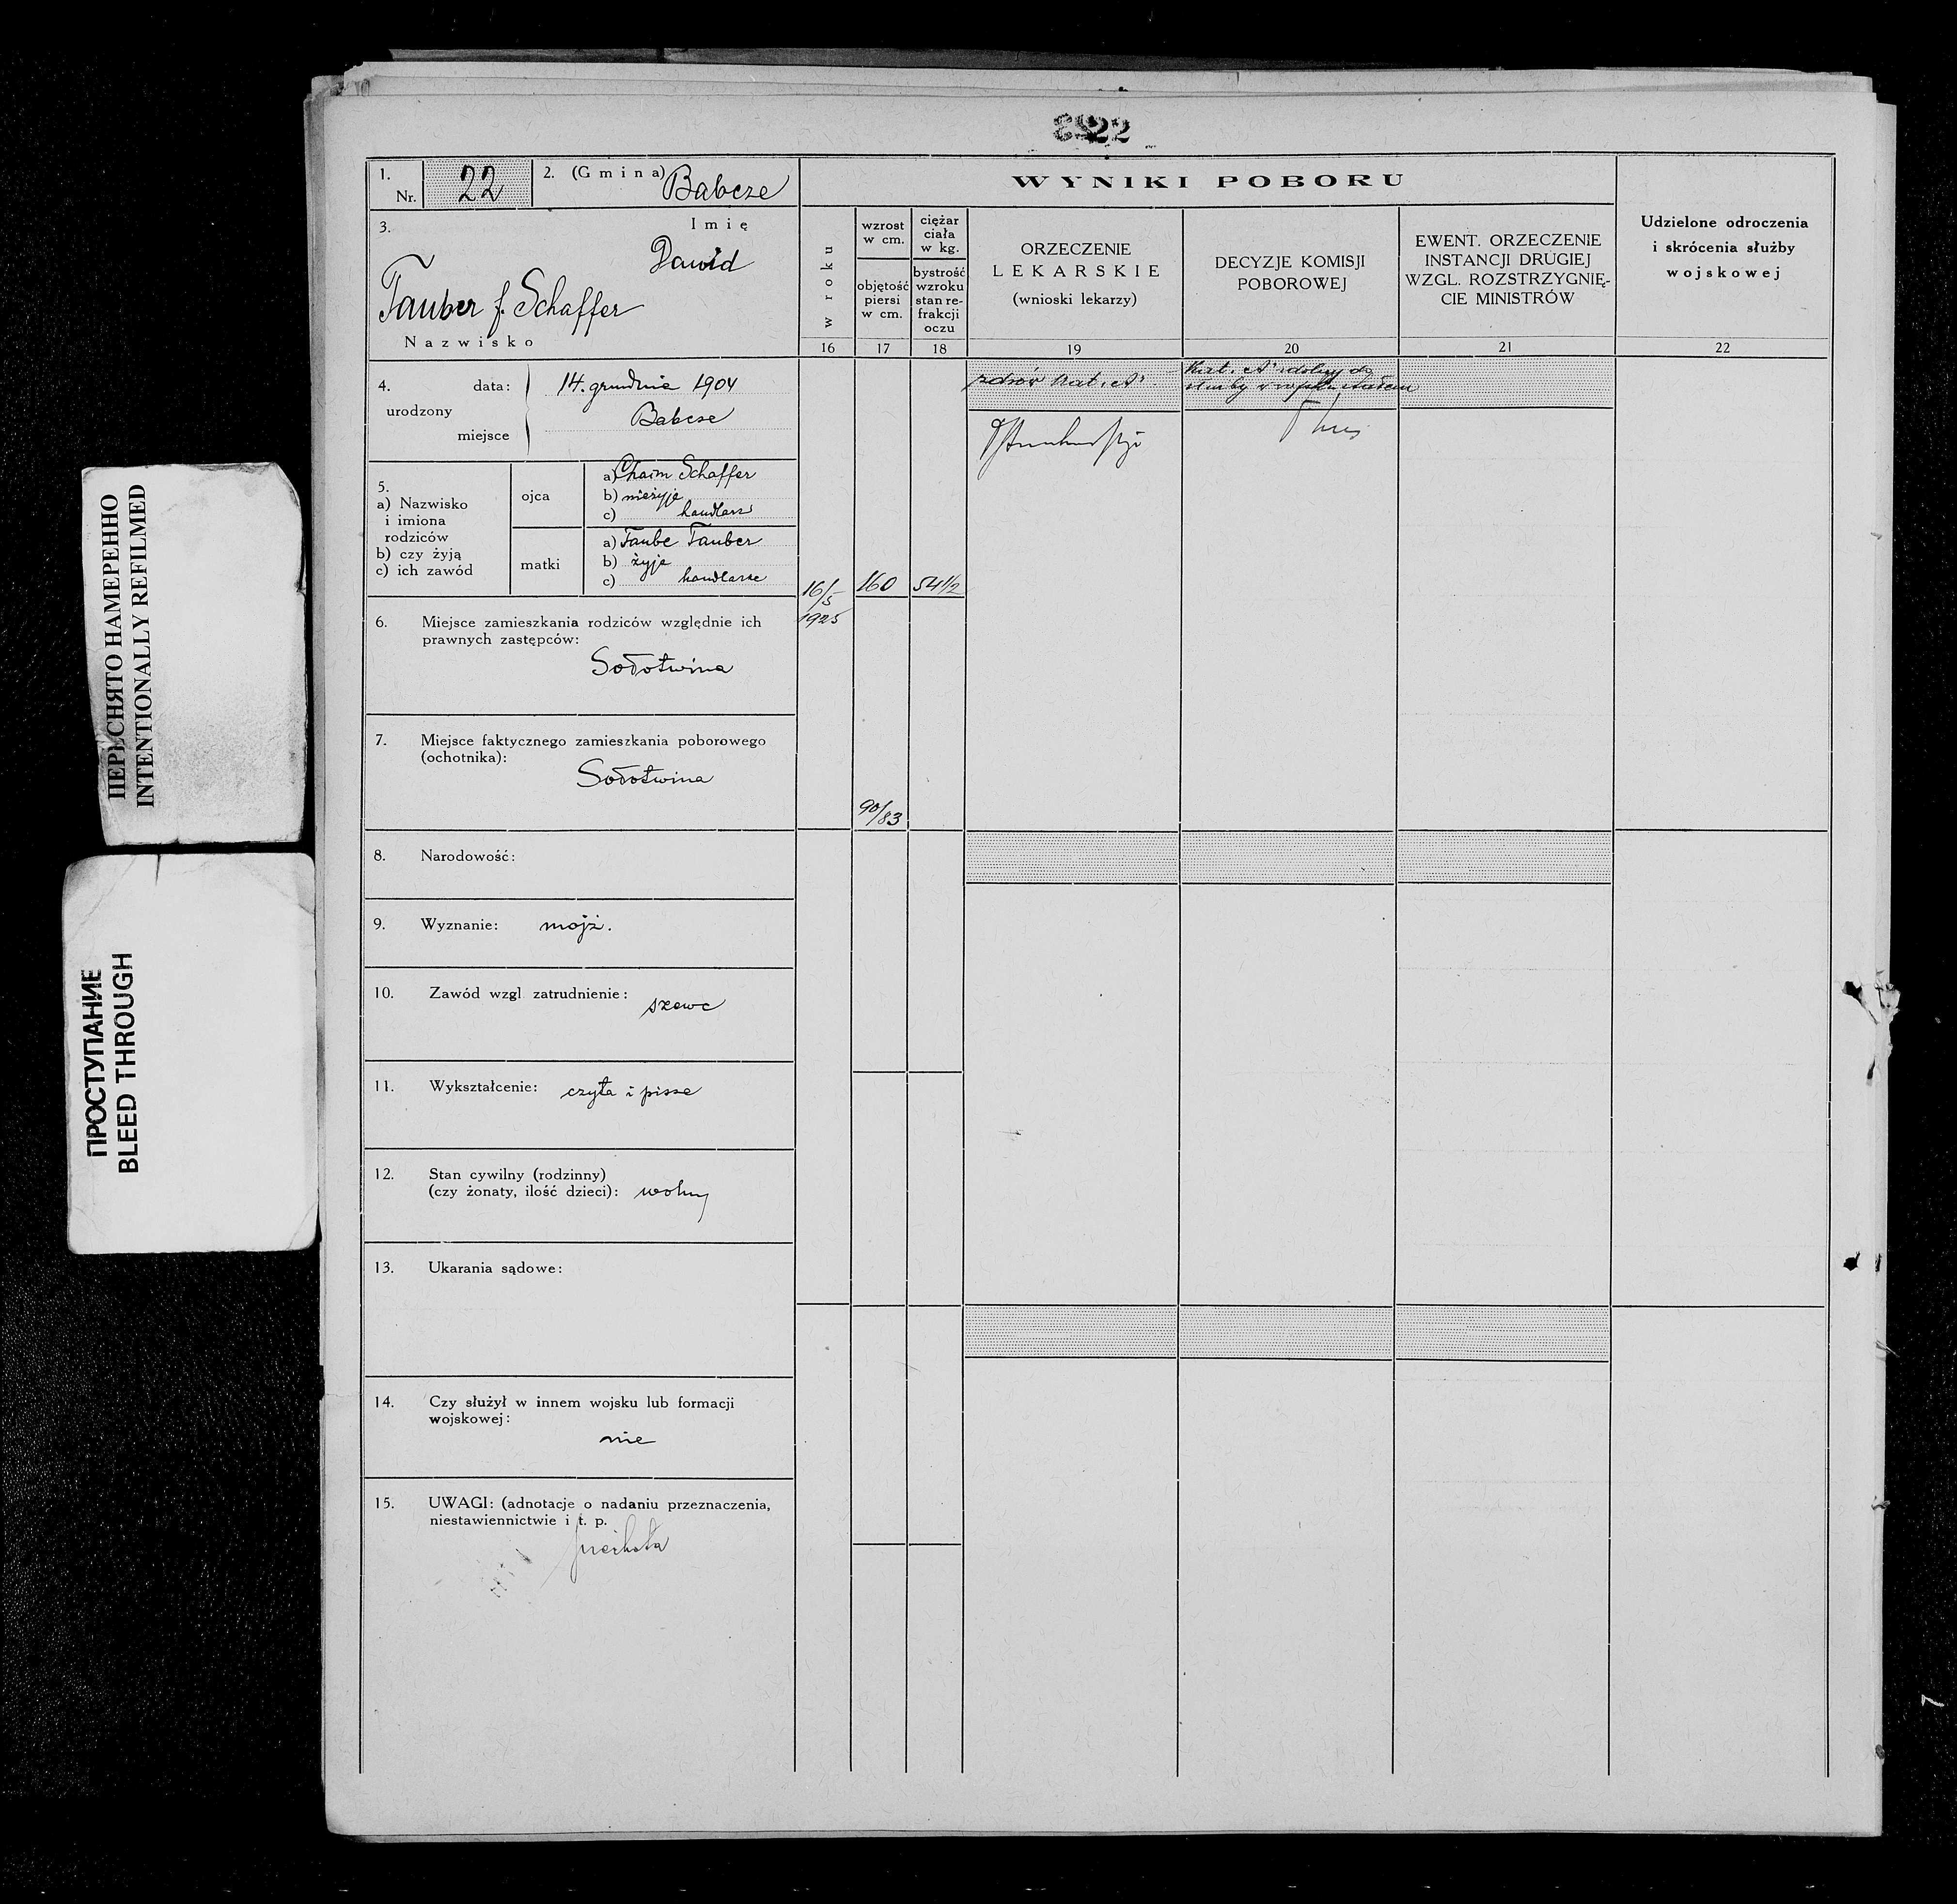 22
1.
Nr. 22
2. (Gmina) Babcze
3.
Imię
Dawid
Tauber f. Schaffer
Nazwisko
4.
urodzony
data: 14. grudnia 1904
miejsce Babcze
5.
a) Nazwisko
i imiona
rodziców
b) czy żyją
c) ich zawód
ojca
a) Chaim Schaffer
b) nieżyje
c) handlarz
matki
a) Taube Tauber
b) żyje
c) handlarze
6. Miejsce zamieszkania rodziców względnie ich
prawnych zastępców:
Sołotwina
7. Miejsce faktycznego zamieszkania poborowego
(ochotnika):
Sołotwina
8. Narodowość:
9. Wyznanie: mojż.
10. Zawód wzgl zatrudnienie: szewc
11. Wykształcenie: czyta i pisze
12. Stan cywilny (rodzinny)
(czy żonaty, ilość dzieci): wolny
13. Ukarania sądowe:
14. Czy służył w innem wojsku lub formacji
wojskowej:
nie
15. UWAGI: (adnotacje o nadaniu przeznaczenia,
niestawiennictwie i t. p.
piechota
WYNIKI POBORU
w roku
16
wzrost
w cm.
objętość
piersi
w cm.
17
ciężar
ciała
w kg.
bystrość
wzroku
stan re-
frakcji
oczu
18
ORZECZENIE
LEKARSKIE
(wnioski lekarzy)
19
DECYZJE KOMISJI
POBOROWEJ
20
EWENT. ORZECZENIE
INSTANCJI DRUGIEJ
WZGL. ROZSTRZYGNIĘ-
CIE MINISTRÓW
21
Udzielone odroczenia
i skrócenia służby
wojskowej
22
16/5
1925
160
54 1/2
90/83
zdrów kat. "A"
Kat. "A" zdolny do
służby
ПЕРЕСНЯТО НАМЕРЕННО
INTENTIONALLY REFILMED
ПРОСТУПАНИЕ
BLEED THROUGH
7